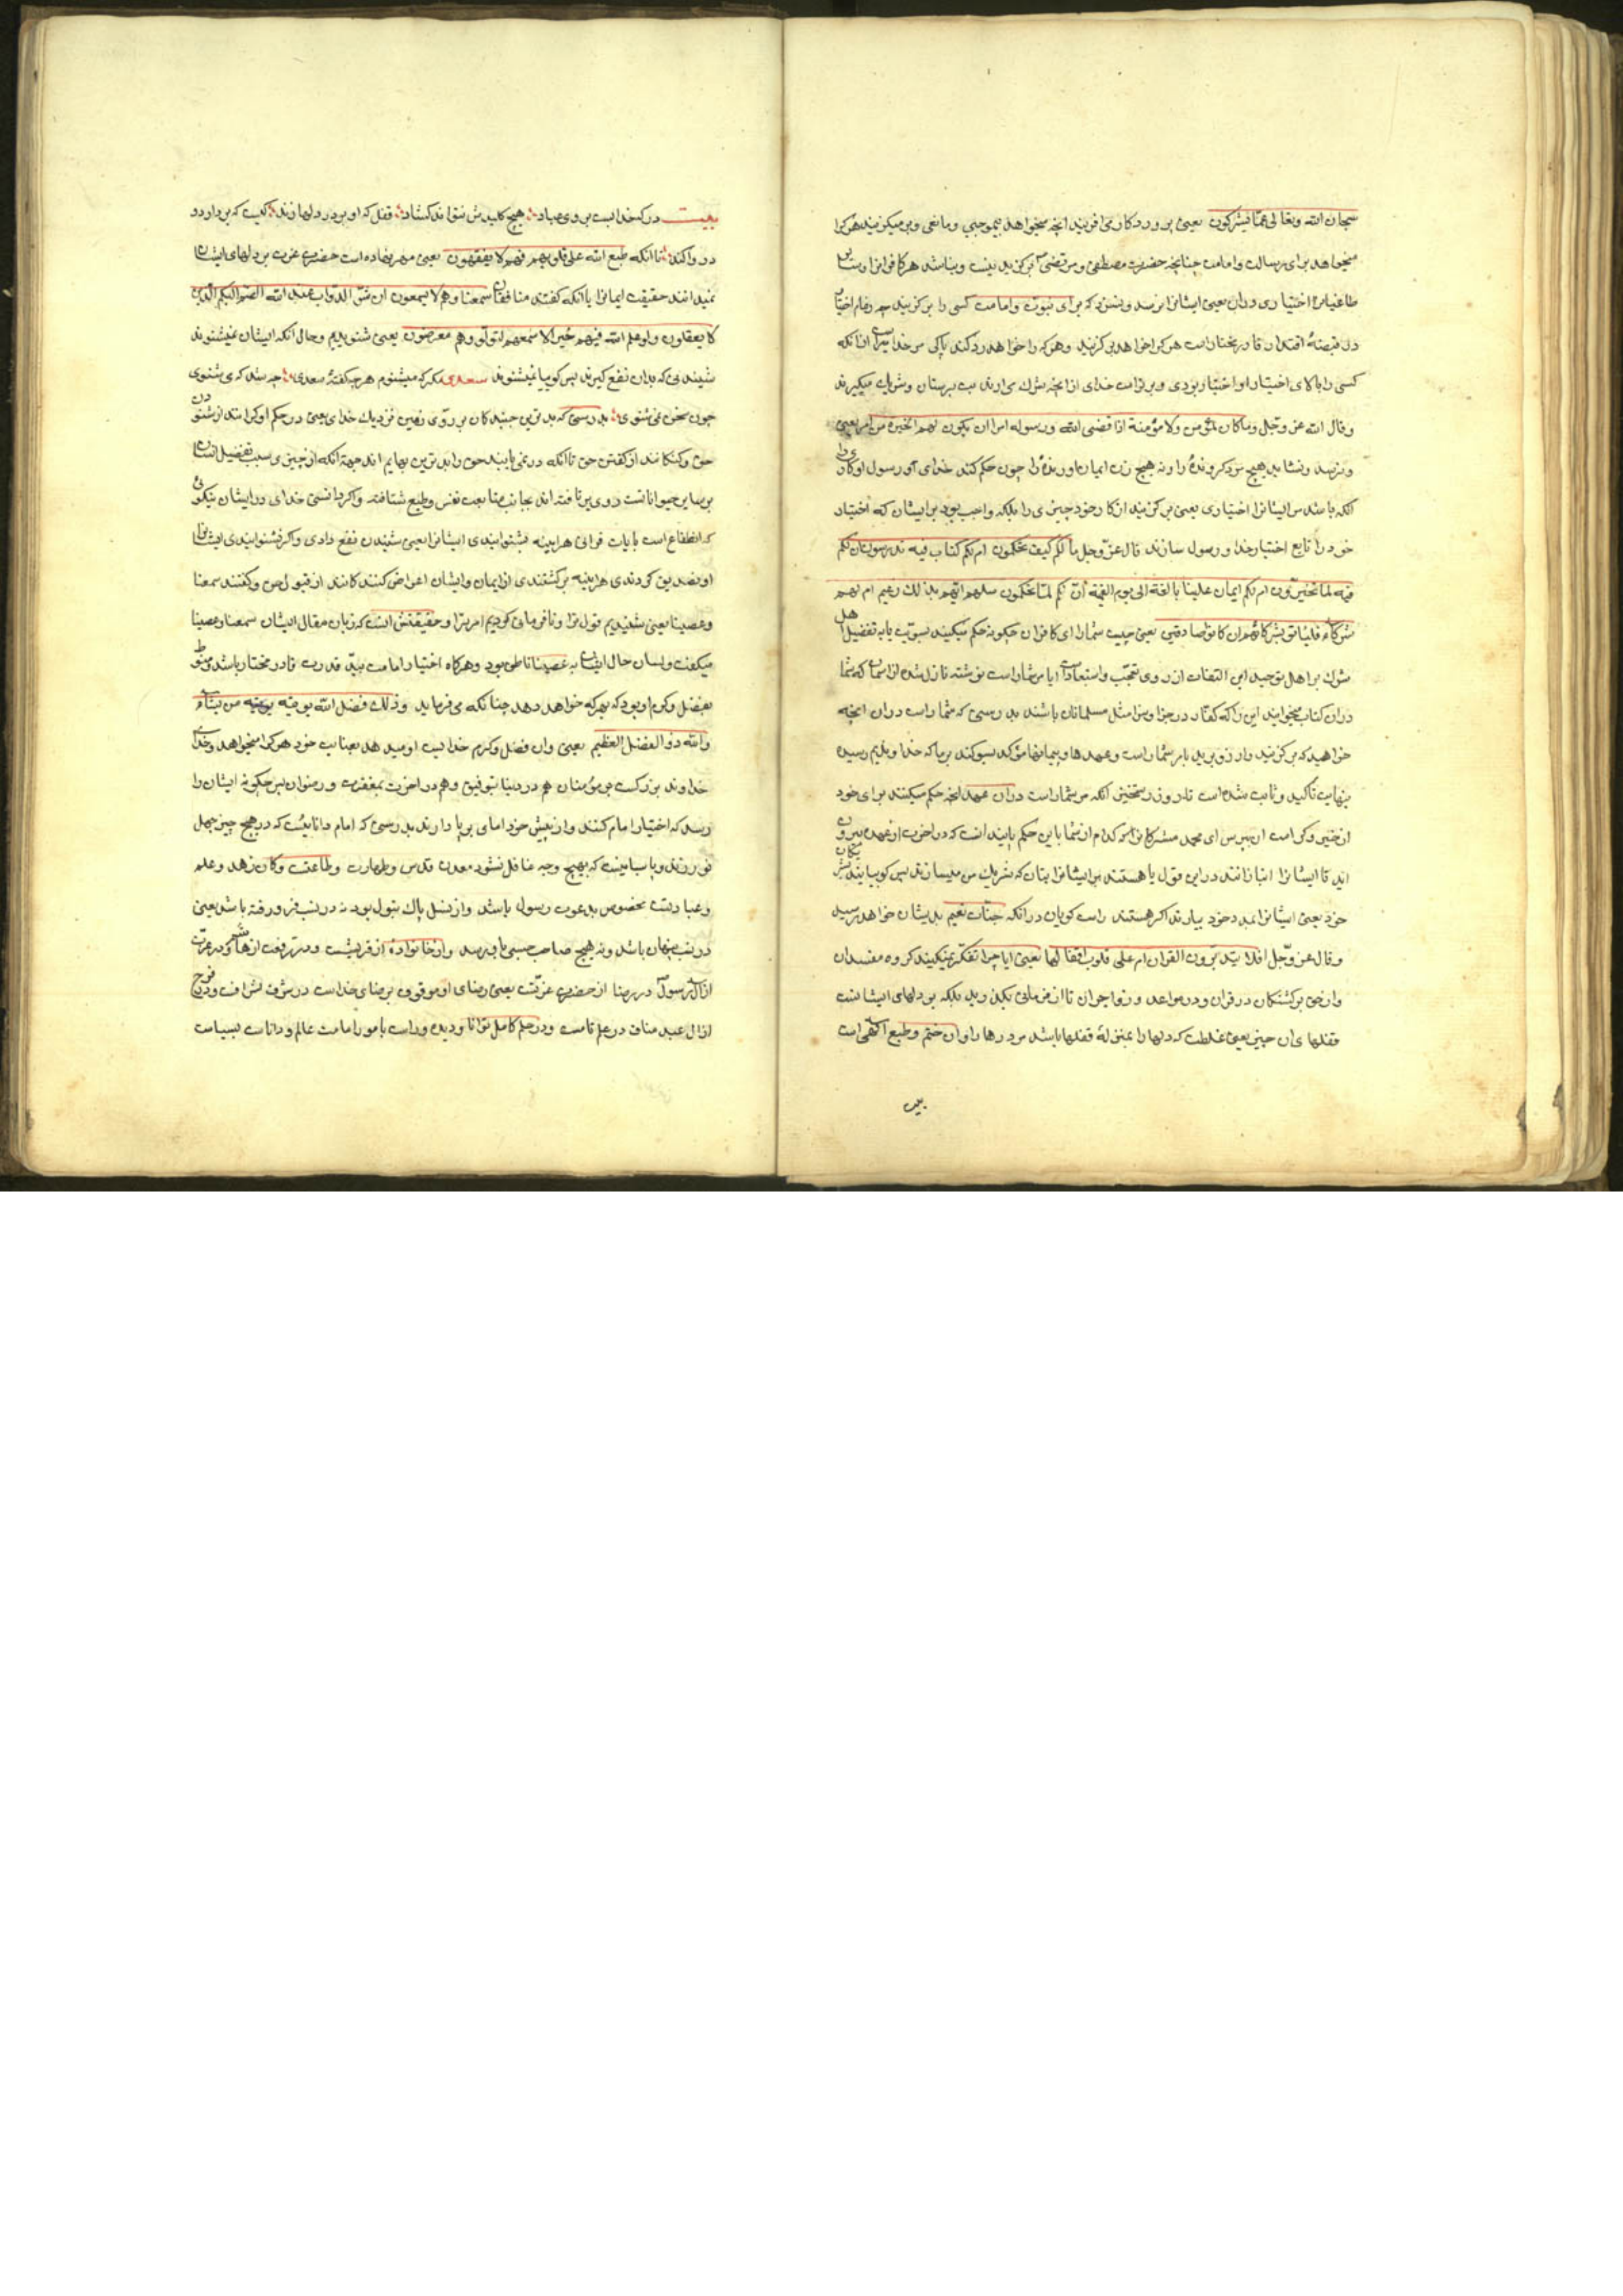 سبحان الله وتعالی عما یشرکون یعنی پروردکار می افریند انچه میخواهد بیموجبی ومانعی وبر میکزیند هرکرا
میخواهد برای رسالت وامامت چنانچه حضرت مصطفی ومرتضی برکزید نیست ونباشد هر کافرانرا و
طاغیانرا اختیاری دران یعنی ایشانرا نرسد ونسزد که برای نبوت وامامت کسی را برکزینند چه زمام اختیار
در قبضهٔ اقتدار قادر مختارست هرکرا خواهد برکزیند وهرکه را خواهد رد کند پاکی مر خدایراست ازانکه
کسی را بالای اختیار او اختیار بودی وبرترست خدای ازانچه شرک می اورند بت پرستان وشریک میکیرند
وقال الله عز وجل وما کان لمؤمن ولا مؤمنة اذا قضی الله ورسوله امرا ان یکون لهم الخیرة من امرهم یعنی
ونرسد ونشاید هیچ مرد کرونده را ونه هیچ زن ایمان اورنده را چون حکم کند خدای و رسول او کاری را
انکه باشد مر ایشانرا اختیاری یعنی برکزینند از کار خود چیزی را بلکه واجب بود بر ایشان که اختیار
خود را تابع اختیار خدا ورسول سازند قال عز وجل ما لکم کیف تحکمون ام لکم کتاب فیه تدرسون ان لکم
فیه لما تخیرون ام لکم ایمان علینا بالغة الی یوم القیمة ان لکم لما تحکمون سلهم ایهم بذلک زعیم ام لهم
شرکاء فلیاتوا بشرکائهم ان کانوا صادقین یعنی چیست شما را ای کافران چکونه حکم میکنید بسویت یا به تفضیل اهل
شرک بر اهل توحید این التفات از روی تعجب واستبعاد است ایا مر شما راست نوشته نازل شده از اسمان که شما
دران کتاب میخوانید این را که کفار در جزا وسزا مثل مسلمانان باشند بدرستی که شما راست دران انچه
خواهید که برکزینید وارزو برید یا مر شما راست وعهدها وپیمانها مؤکد بسوکند بر ما که خداوندیم رسیده
بنهایت تاکید وثابت شده است تا روز رستخیز انکه مر شما راست دران عهد انچه حکم میکنید برای خود
از خیر وکرامت ان بپرس ای محمد مشرکانرا که کدام از شما باین حکم پایندانست که در اخرت از عهده بیرون
اید تا ایشانرا انبازانند درین قول یا هستند مر ایشانرا بتان که شریک من میسازند پس کو بیایند بشریکان
خود یعنی ایشانرا بمدد خود بیارند اکر هستند راست کویان در انکه جنات نعیم بدیشان خواهد رسید
وقال عز وجل افلا یتدبرون القران ام علی قلوب اقفالها یعنی ایا چرا تفکر نمیکنید کروه مفسدان
وازحق برکشتکان در قران ودر مواعد وزواجر ان تا از فرمانی نکیرید بلکه بر دلهای ایشانست
قفلهای ان چیزی یعنی غلظت که دلها را بمنزلهٔ قفلها باشد مر درها را وان ختم وطبع الهی است
بیت
بیت درکه خدا بست بروی عباد هیچ کلیدش نتواند کشاد قفل که او بر در دلها زند کیست که بردارد و
در وا کند تا انکه طبع الله علی قلوبهم فهم لا یفقهون یعنی مهر نهاده است حضرت عزت بر دلهای ایشان
نمیدانند حقیقت ایمانرا یا انکه کفتند منافقان سمعنا وهم لا یسمعون ان شر الدواب عند الله الصم البکم الذین
لا یعقلون ولو علم الله فیهم خیرا لاسمعهم ولو اسمعهم لتولوا وهم معرضون یعنی شنویدیم وحال انکه ایشان نمیشنوند
شنیدنی که بدان نفع کیرند پس کویا نمیشنوند سعدی مکر که میشنوم هرچه کفتهٔ سعدی چه شد که می شنوی
چون سخن نمی شنوی بدرستی که بدترین جنبدکان بر روی زمین نزدیک خدای یعنی در حکم او کرانند از شنودن
حق وکنکانند از کفتن حق تا انکه در نمی یابند حق را بدترین بهایم اند جهة انکه از چیزی سبب تفضیل ایشان
بر سایر حیوانانست روی برتافته اند بجانب متابعت نفس وطبع شتافته واکر دانستی خدای در ایشان نیکوئی
که انتفاع است بایات قرانی هراینه بشنوانیدی ایشانرا یعنی شنیدن نفع دادی واکر بشنوانیدی ایشانرا
او تصدیق کردندی هراینه برکشتندی از ایمان وایشان اعراض کنندکانند از قبول حق وکفتند سمعنا
وعصینا یعنی شنیدیم قول ترا ونافرمانی کردیم امر ترا وحقیقتش انست که زبان مقال ایشان سمعنا وعصینا
میکفت ولسان حال ایشان به عصینا ناطق بود وهرکاه اختیار امامت بید قدرت قادر مختار باشد منوط
بفضل وکرم او بود که بهرکه خواهد دهد چنانکه می فرماید وذلک فضل الله یوتیه من یشاء
والله ذو الفضل العظیم یعنی وان فضل وکرم خدایست او میدهد بعنایت خود هرکرا میخواهد وخدای
خداوند بزرکست بر مؤمنان هم در دنیا بتوفیق وهم در اخرت بمغفرت ورضوان پس چکونه ایشان را
رسد که اختیار امام کنند واز پیش خود امامی برپا دارند بدرستی که امام دانائیست که در هیچ چیز جهل
نورزند وپاسبانیست که بهیچ وجه غافل نشود معدن قدس وطهارت وطاعت وکان زهد وعلم
وعبادت مخصوص بدعوت رسول باشد واز نسل پاک بتول بود نه در نسب فرورفته باشد یعنی
در نسب پنهان باشد ونه هیچ صاحب حسبی باو رسد واز خانوادهٔ از قریشست ودر رفعت از هاشم ودر عزت
از آل رسول در رضا از حضرت عزتت یعنی رضای او موقوف برضای خداست در شرف اشراف ودر فرع
از آل عبد مناف در علم تامست ودر حلم کامل توانا ودیده وراست بامور امامت عالم وداناست بسیاست